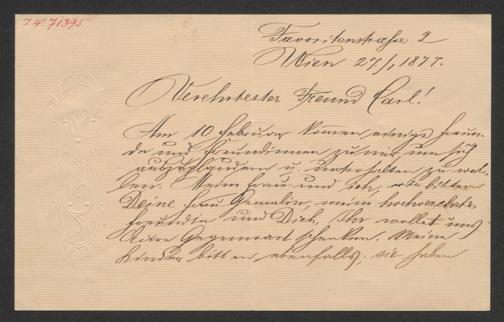 I.N. 71395
Favoritenstrasse 2
Wien 27/1, 1877.
Verehrtester Freund Carl!
Am 10 Februar komen einige Freun-
de und Freundinnen zu mir, um sich
auszuplaudern u. unterhalten zu wol-
len. Meine Frau und ich, bitten
Deine Frau Gemalin, meine hochverehrte
Freundin und Dich, Ihr wollet uns
Gegenwart schenken. Meine
Kinder bitten ebenfalls, sie haben